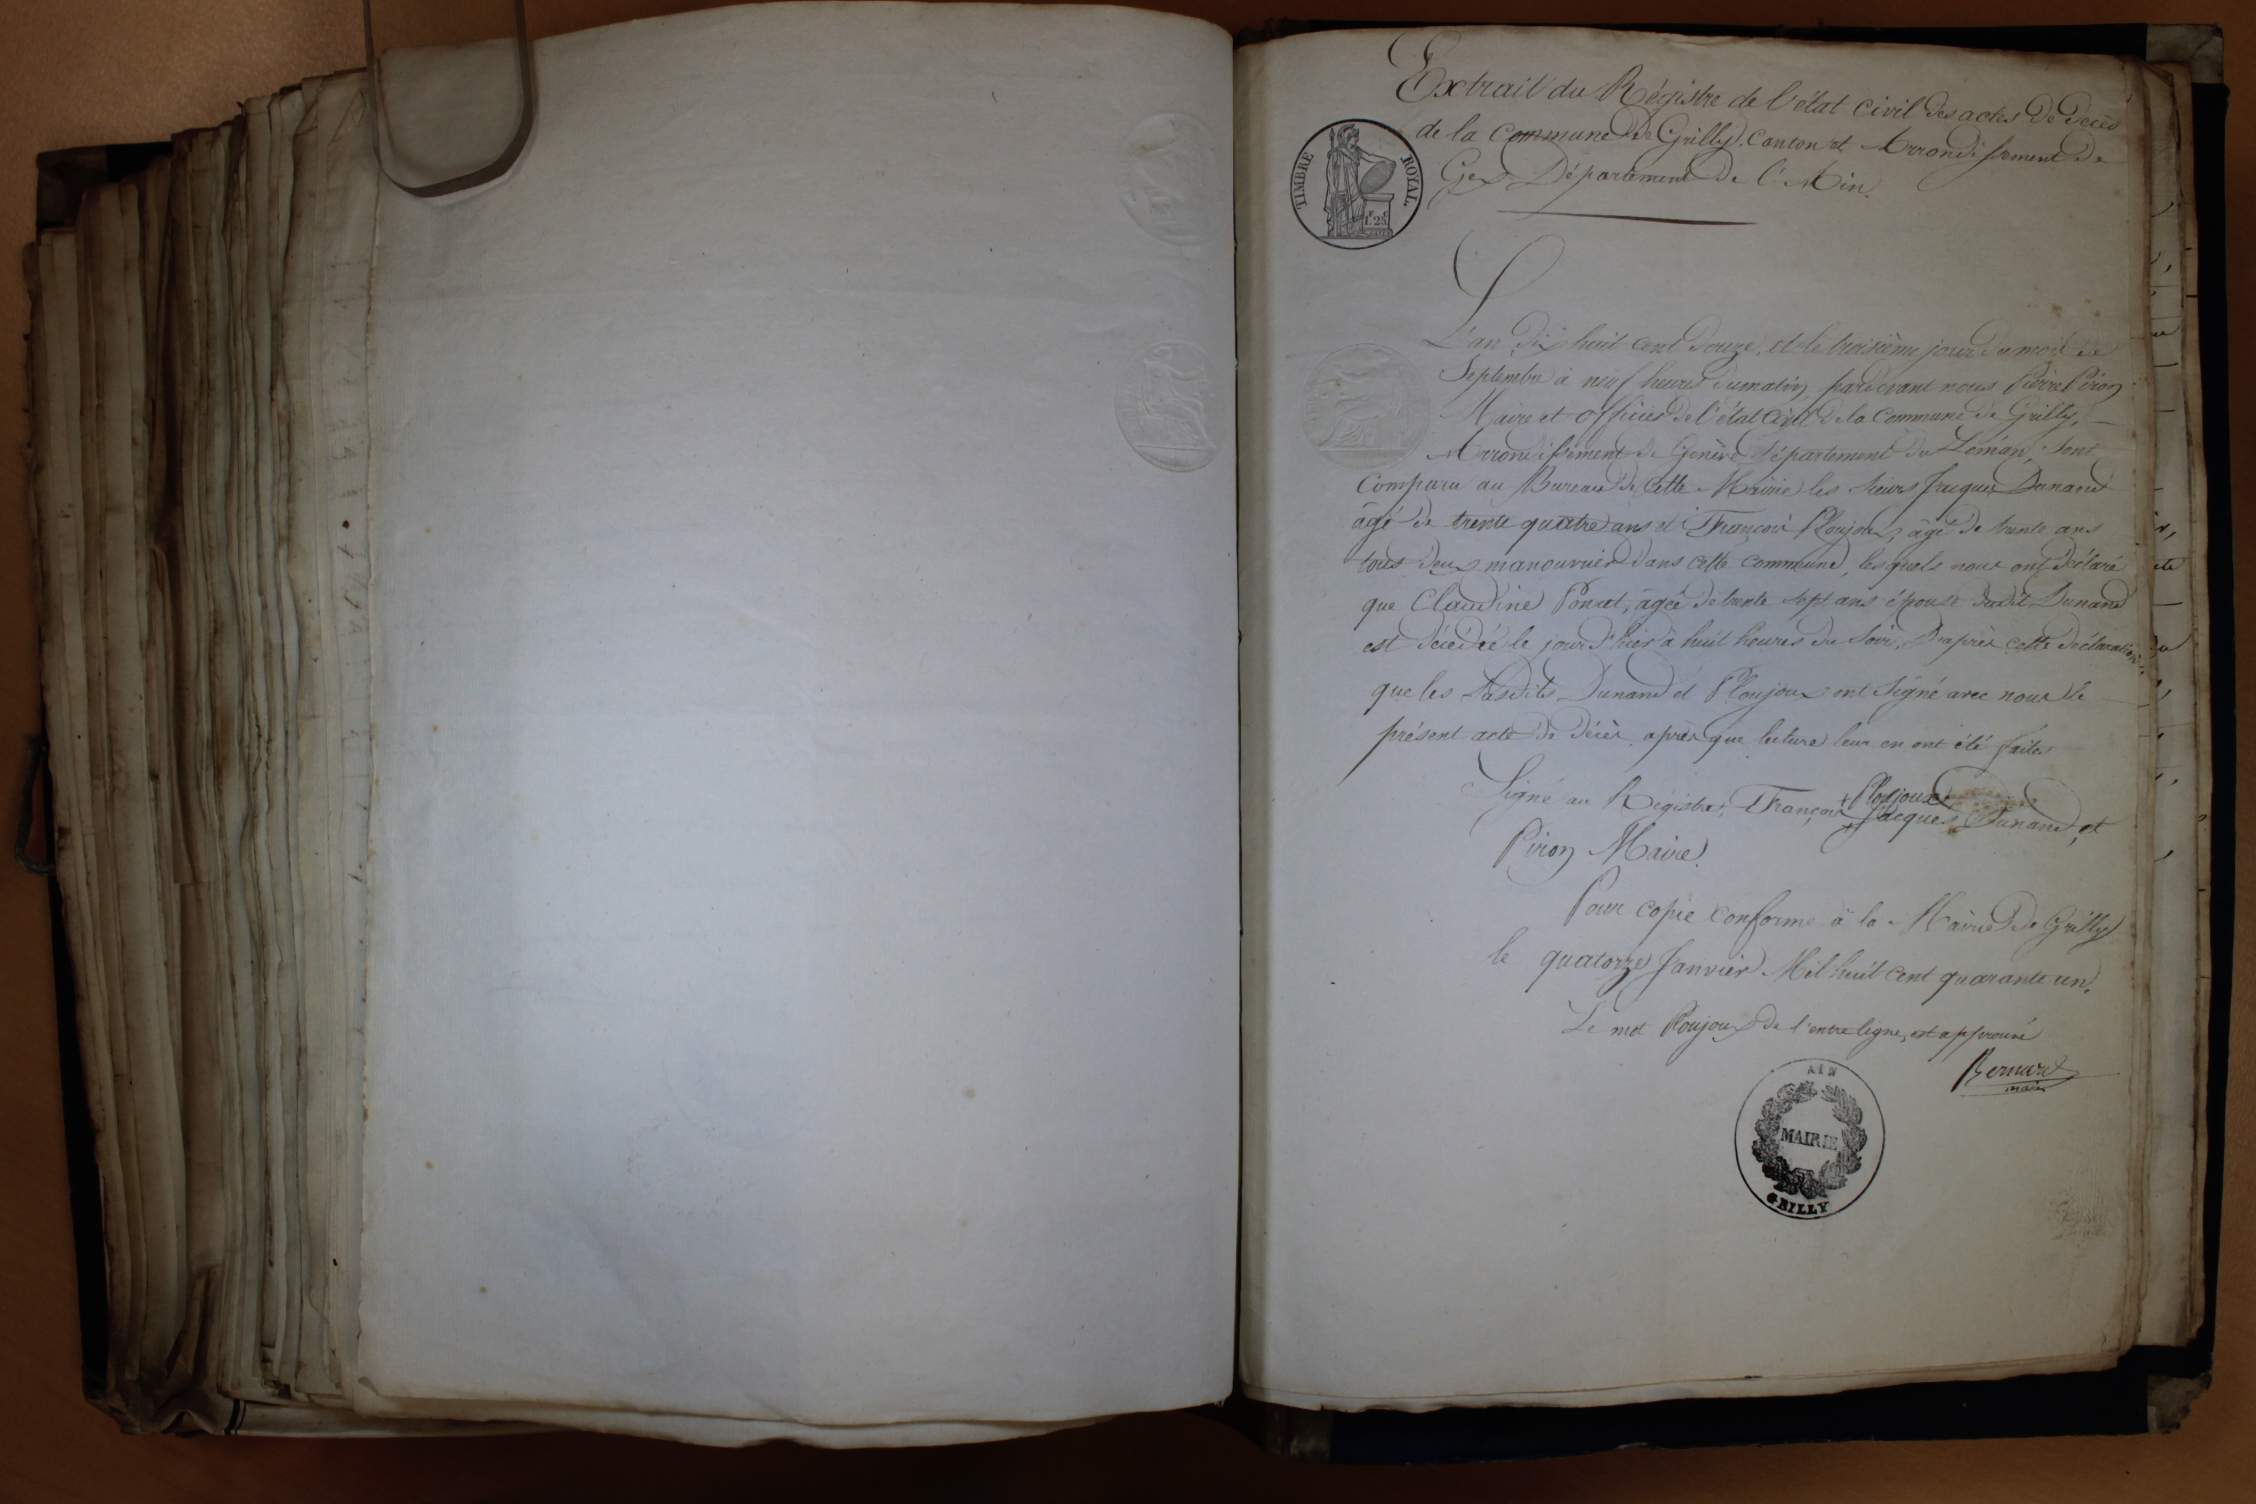 Extrait du Régistre de l'état civil des actes de Décès
de la commune de Grilly, Canton et Arrondissement de
Gex Département de l'Ain.
TIMBRE ROYAL
1F 25C
L'an dix huit cent douze, et le troisième jour du mois de
Septembre à neuf heures du matin, pardevant nous Pierre Piron
Maire et officier de l'état Civil de la Commune de Grilly,
Arrondissement de Genève Département du Léman, sont
Comparu au Bureau de cette Mairie les sieurs Jacques Dunand
âgé de trente quatre ans et François Ploujoux âgé de trente ans
tous deux manouvrier dans cette commune, lesquels nous ont déclaré
que Claudine Poncet, âgée de trente sept ans épouse dudit Dunand
est décédée le jour d'hier à huit heures du soir. D'après cette déclaration
que les Susdits Dunand et Ploujoux ont signé avec nous le
présent acte de décès, après que lecture leur en ont été faites
Signé au Régistre, François Ploujoux Jacques Dunand, et
Piron Maire.
Pour copie conforme à la Mairie de Grilly
le quatorze Janvier Mil huit cent quarante un.
Le mot Ploujoux de l'entre ligne, est approuvé
Bernard
maire
AIN
MAIRIE
GRILLY